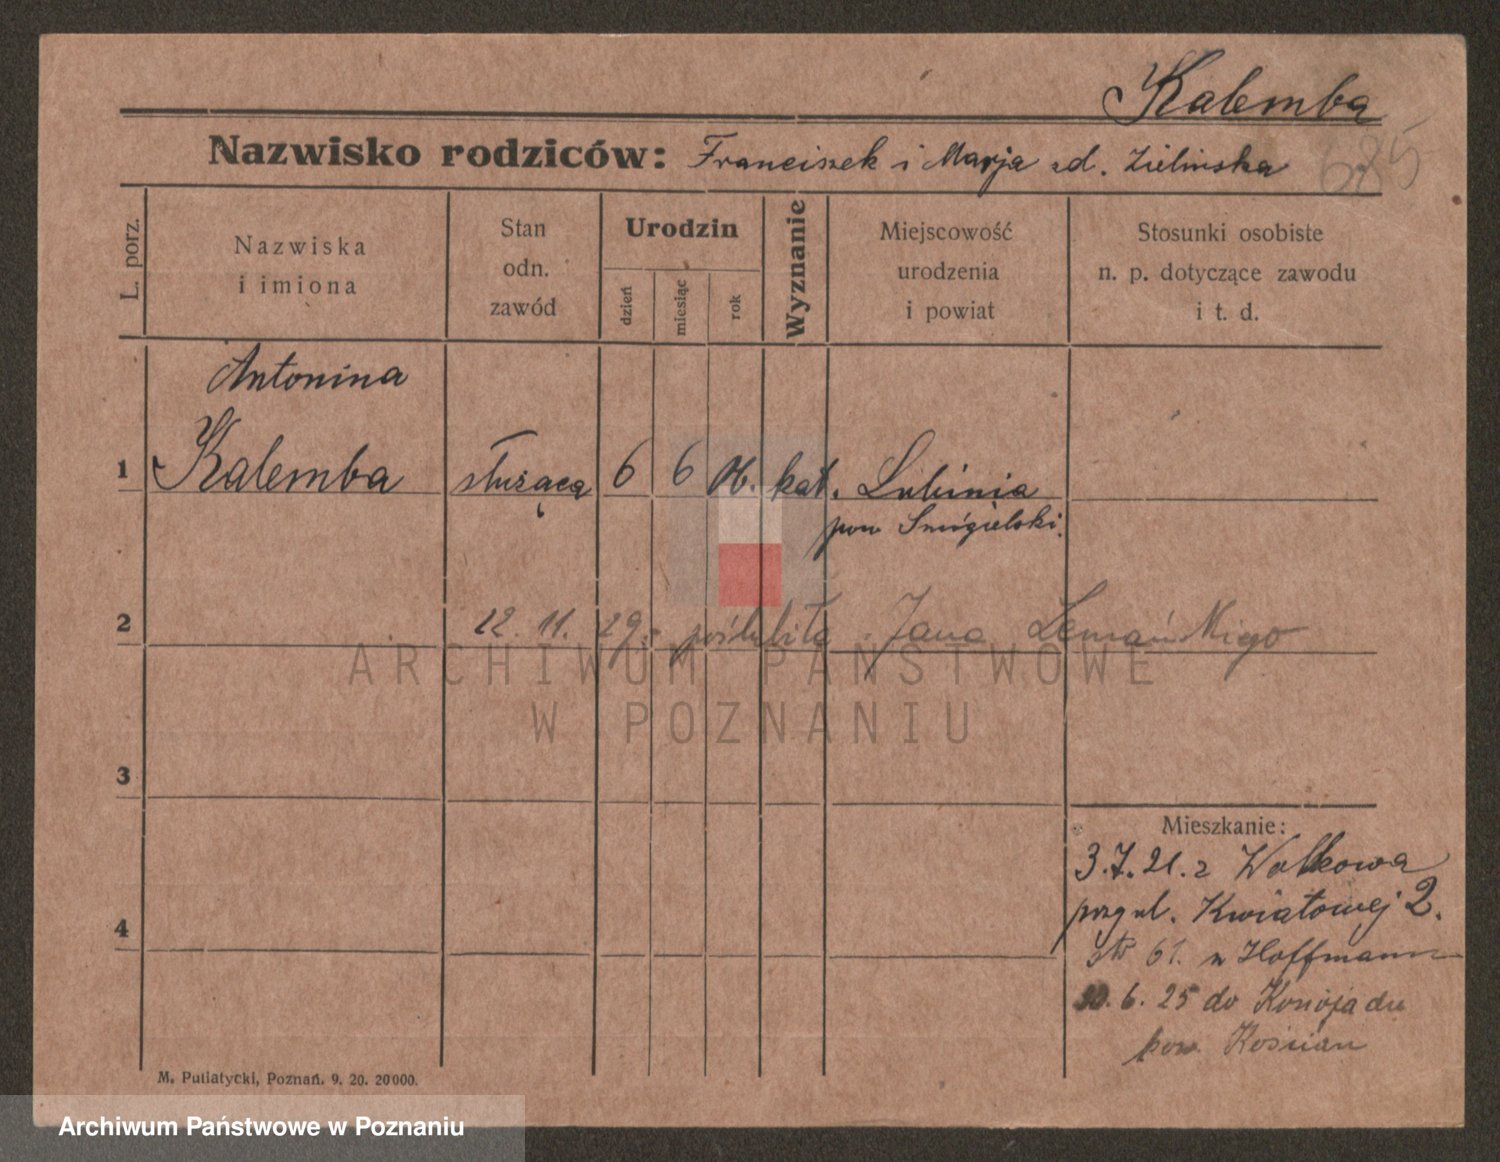 Kalemba
Nazwisko rodziców: Franciszek i Marja zd. Zielińska
685
L. porz.
Nazwiska
i imiona
Stan
odn.
zawód
Urodzin
dzień
miesiąc
rok
Wyznanie
Miejscowość
urodzenia
i powiat
Stosunki osobiste
n. p. dotyczące zawodu
i t. d.
Antonina
1 Kalemba służąca 6 6 06. kat. Lubinia
pow Smigielski.
2 12. 11. 29. poślubiła Jana Lemańskiego
3
Mieszkanie:
3.7.21. z Wolkowa
przy ul. Kwiatowej 2.
4
61. Hoffmann
6. 25 do Konojadu
pow. Kościan
M. Putiatycki, Poznań. 9. 20. 20000.
ARCHIWUM PAŃSTWOWE
W POZNANIU
Archiwum Państwowe w Poznaniu